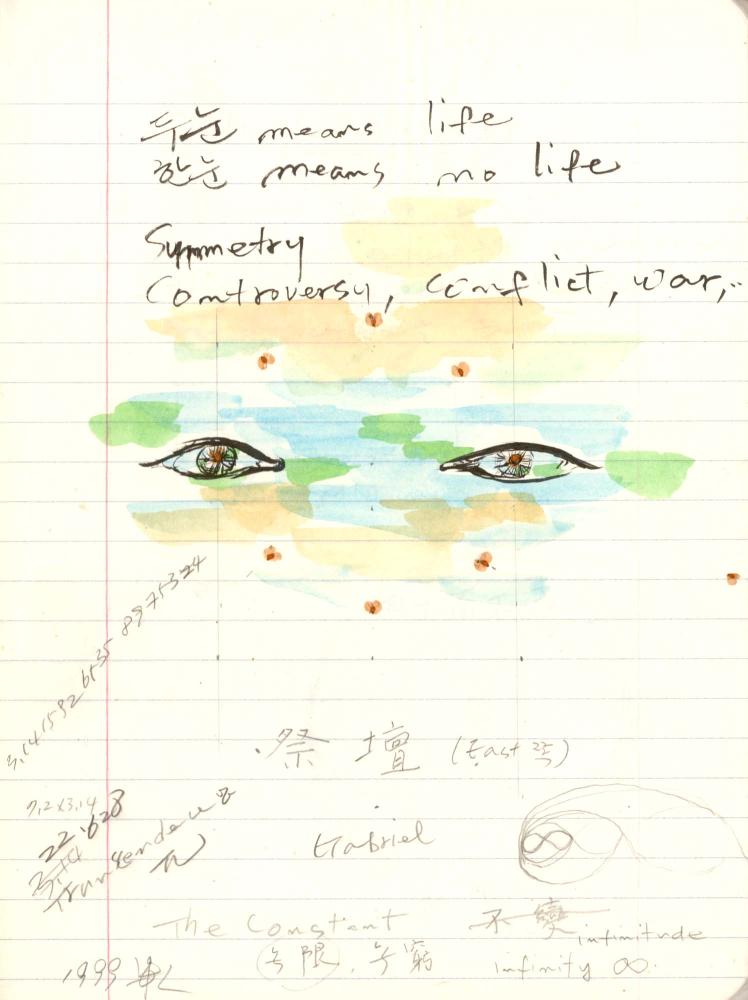 두눈 means life
한눈 means no life
Symmetry
Controversy, Conflict, war,..
3.1415926535 8975324
祭壇 (East 쪽)
7.2 x 3.14
22.628
3.14
Transendence
π
Gabriel
The Constant 不變
infinitude
無限, 無窮 infinity ∞.
1999